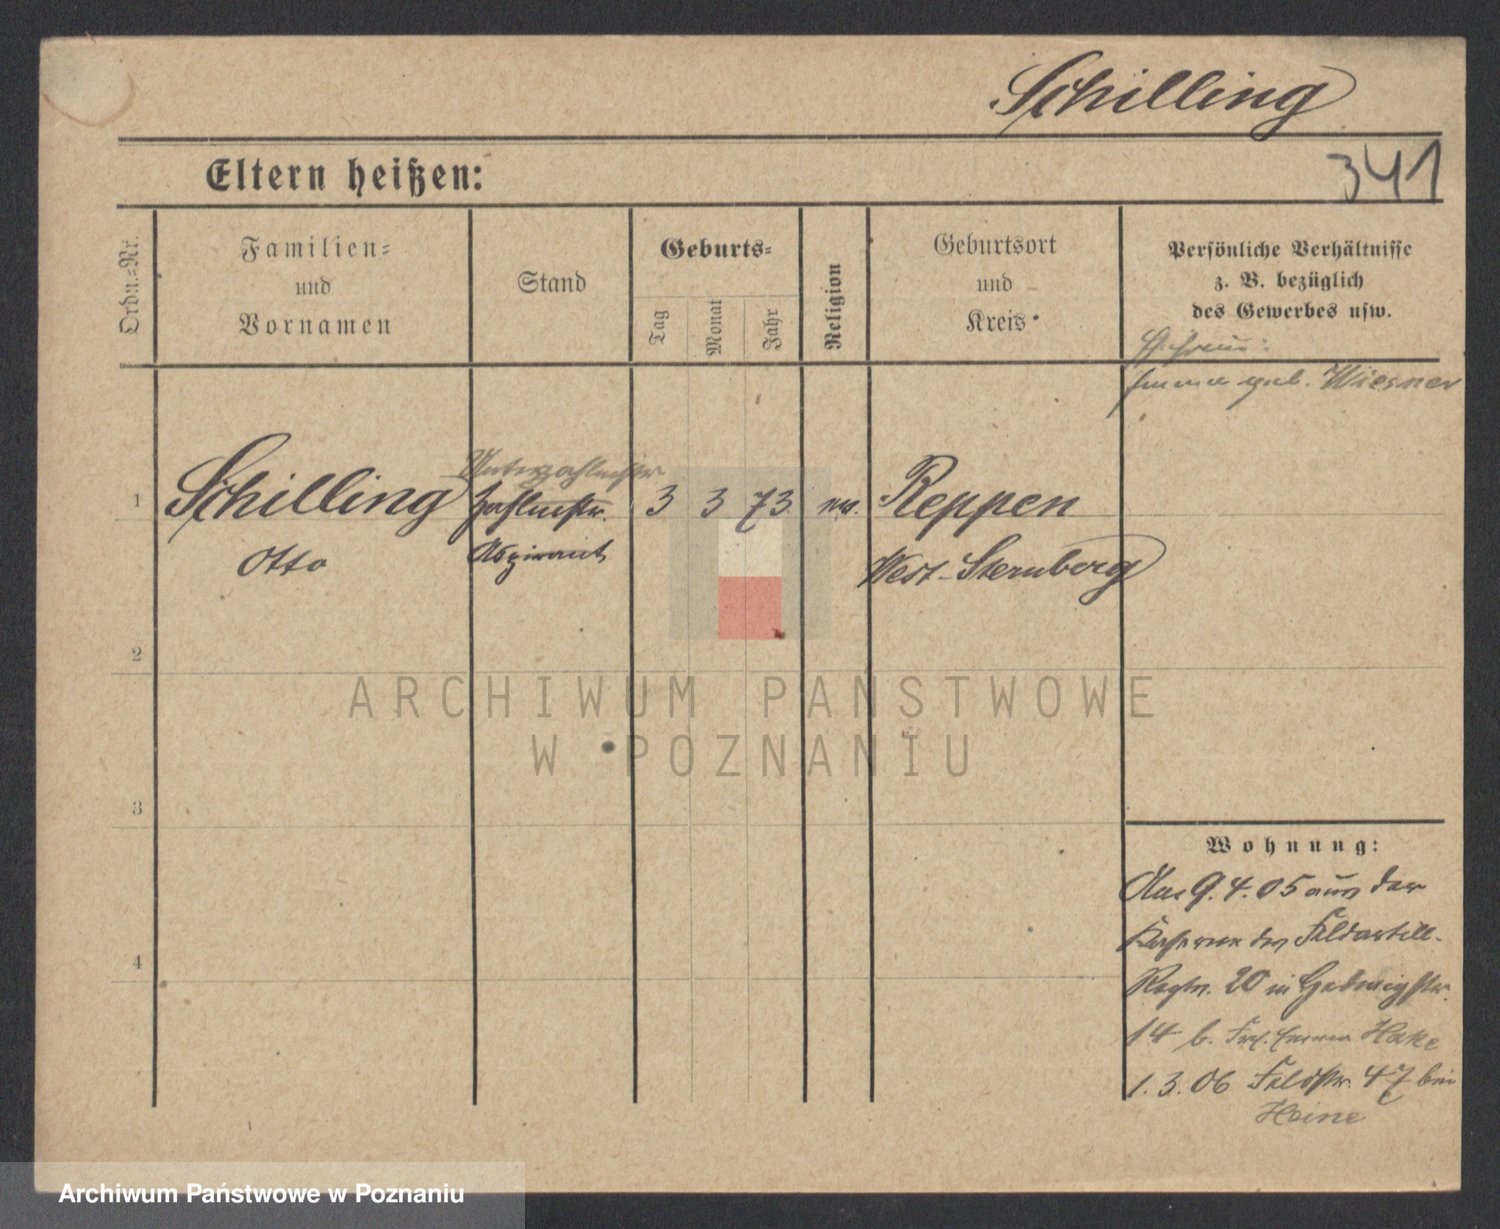 Schilling
Eltern heißen:
341
Ordn.=Nr.
Familien=
und
Vornamen
Stand
Geburts=
Tag
Monat
Jahr
Religion
Geburtsort
und
Kreis
Persönliche Verhältnisse
z. B. bezüglich
des Gewerbes usw.
Ehefrau:
Emma geb. Wiesner
Unterzahlmstr
1
Schilling
Zahlmstr.
3
3
73.
ev.
Reppen
Otto
Aspirant
West-Sternberg
2
ARCHIWUM PAŃSTWOWE
W POZNANIU
3
4
Wohnung:
Am 9.4.05 aus der
Kaserne des Feldartill.
Regts. 20 in Hedwigstr.
14 b. Frl. Emma Hake
1.3.06 Feldstr. 47 bei
Heine
Archiwum Państwowe w Poznaniu